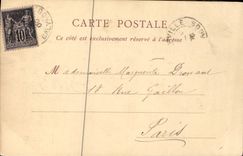 CARTE POSTALE
Ce côté est exclusivement réservé à l'adresse
10
Mademoiselle Marguerite
18 Rue Gaillon
Paris